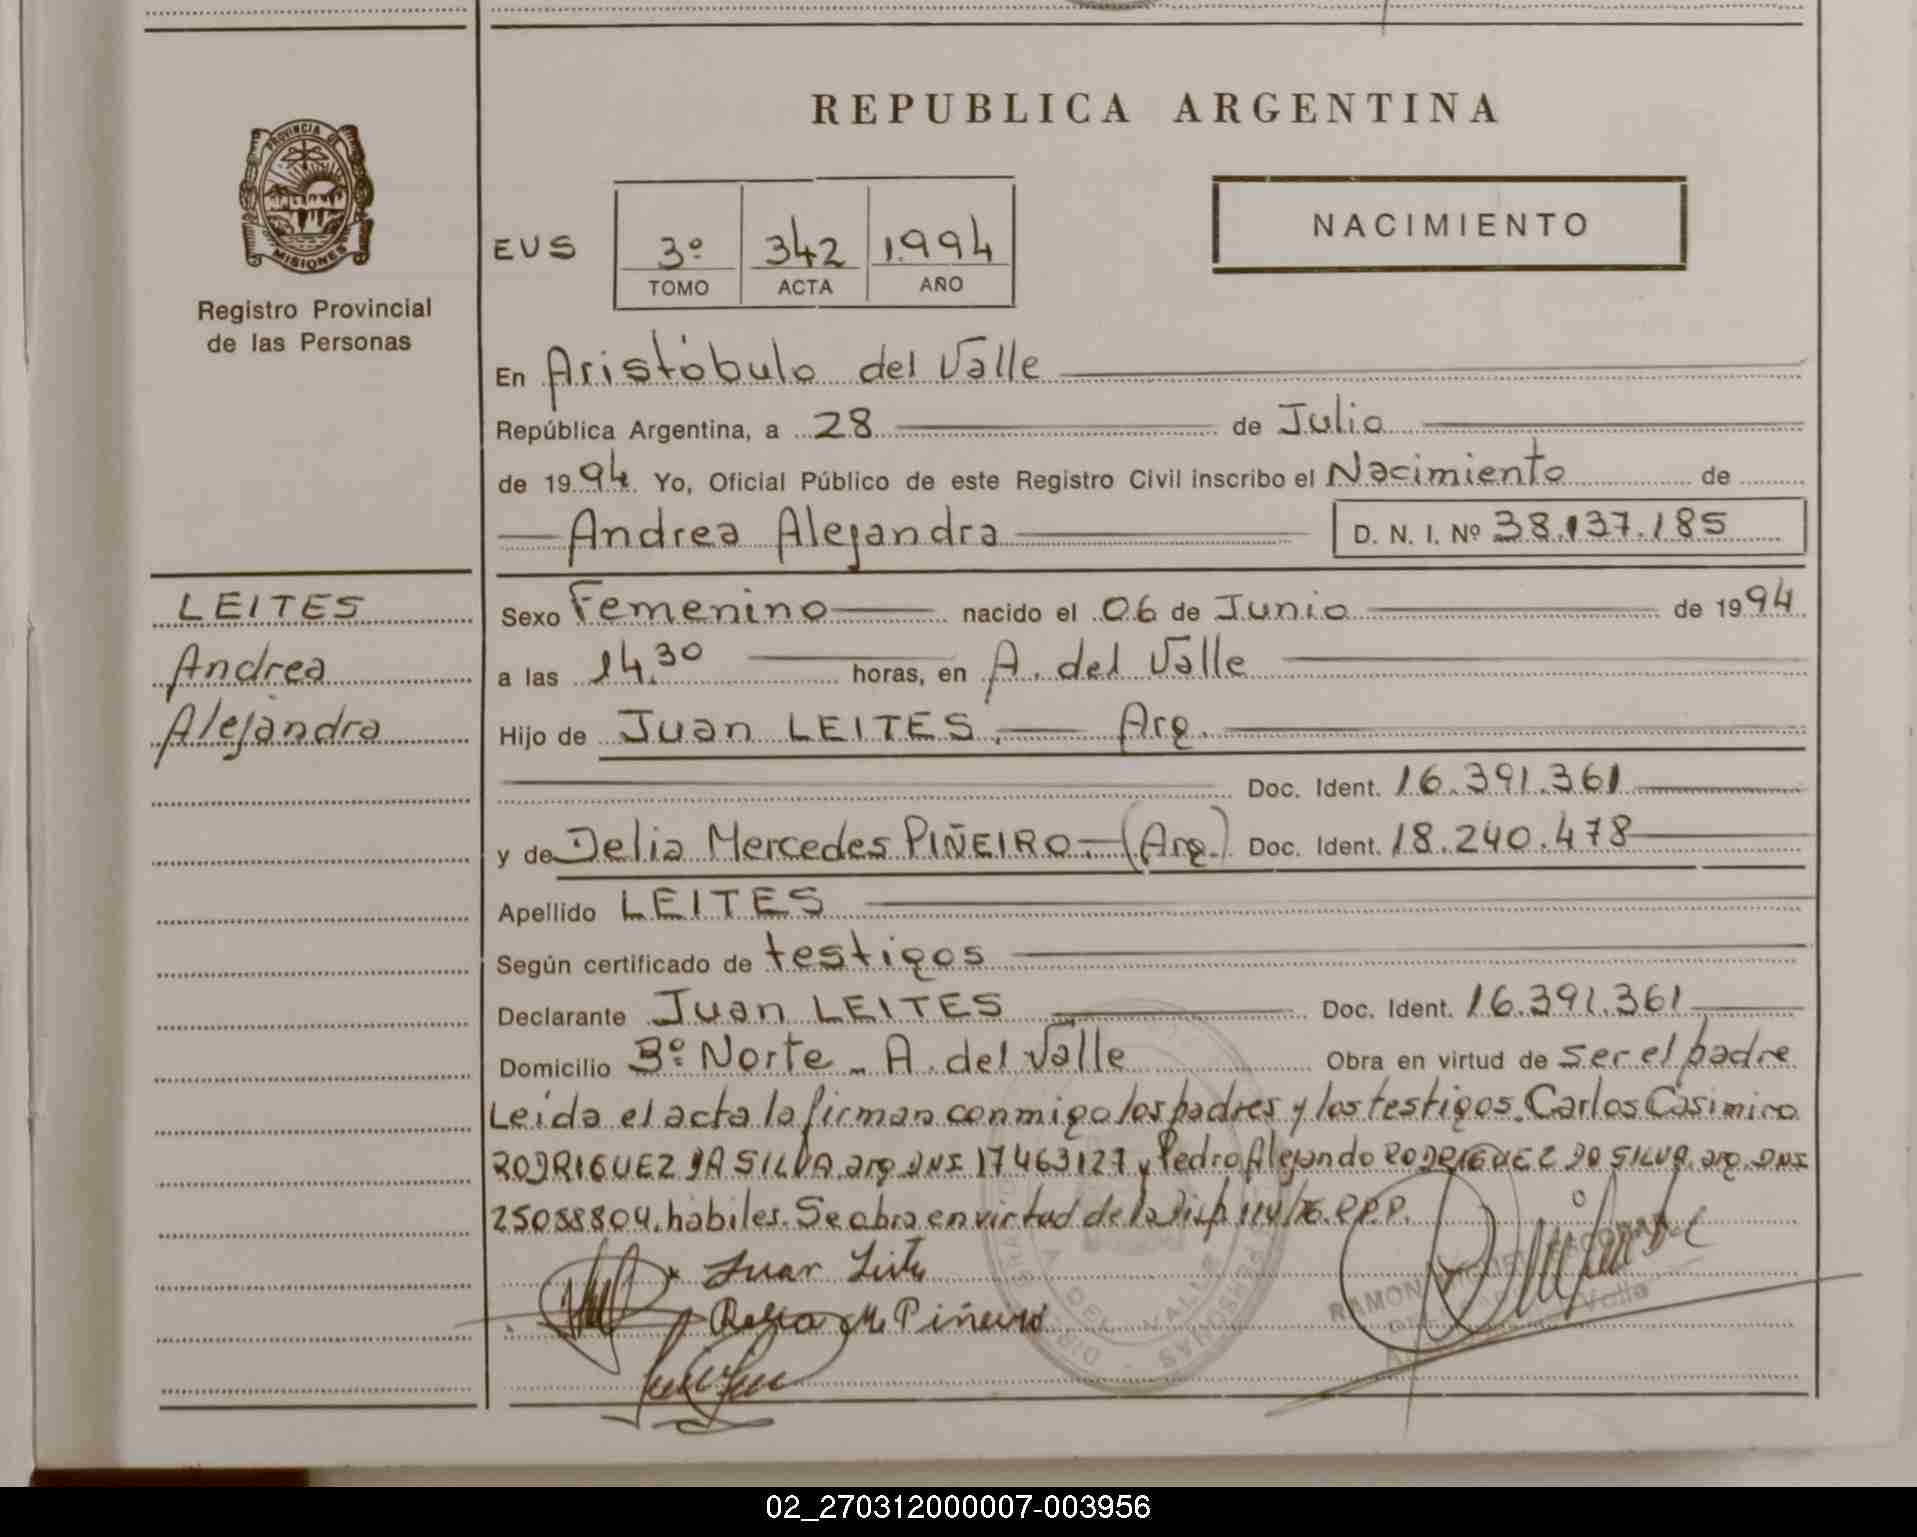 REPUBLICA ARGENTINA
PROVINCIA DE MISIONES
Registro Provincial
de las Personas
NACIMIENTO
EUS 3º 342 1.994
TOMO ACTA AÑO
En Aristóbulo del Valle
República Argentina, a 28 de Julio
de 1994 Yo, Oficial Público de este Registro Civil inscribo el Nacimiento de
Andrea Alejandra D. N. I. Nº 38.137.185
LEITES
Andrea
Alejandra
Sexo Femenino nacido el 06 de Junio de 1994
a las 14.30 horas, en A. del Valle
Hijo de Juan LEITES. Arg.
Doc. Ident. 16.391.361
y de Delia Mercedes PIÑEIRO.- (Arg.) Doc. Ident. 18.240.478
Apellido LEITES
Según certificado de testigos
Declarante Juan LEITES Doc. Ident. 16.391.361
Domicilio 3º Norte - A. del Valle Obra en virtud de ser el padre
Leída el acta la firman conmigo los padres y los testigos. Carlos Casimiro
RODRIGUEZ DA SILVA. arg. DNI 17463127 y Pedro Alejando RODRIGUEZ DO SILVA. arg. DNI
25088804. habiles. Se obra en virtud de la Disp 114/76. R.P.P.
Juan Leites
Delia M. Piñeiro
A DEL VALLE
RAMON ESCOBAR
Valle
02_270312000007-003956